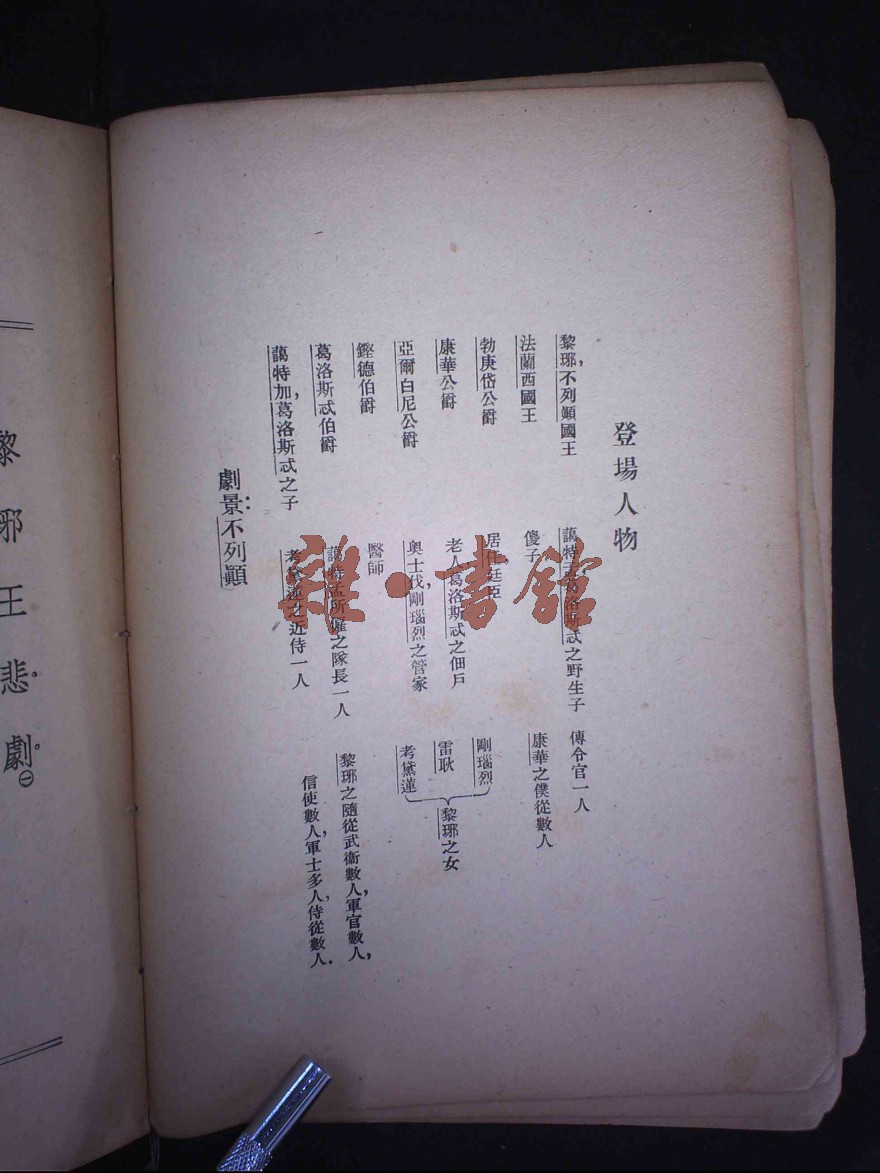 登場人物
黎琊，不列顛國王
法蘭西國王
勃庚岱公爵
康華公爵
亞爾白尼公爵
鏗德伯爵
葛洛斯忒伯爵
藹特加，葛洛斯忒之子
藹特孟，葛洛斯忒之野生子
傻子
居任，廷臣
老人，葛洛斯忒之佃戶
奥士伐，剛瑙烈之管家
醫師
藹特孟所僱之隊長一人
考黛蓮之近侍一人
傳令官一人
康華之僕從數人
剛瑙烈
雷耿
考黛蓮
黎琊之女
黎琊之隨從武衞數人，軍官數人，
信使數人，軍士多人，侍從數人．
劇景：不列顛
黎琊王悲劇㊀
雜·書館